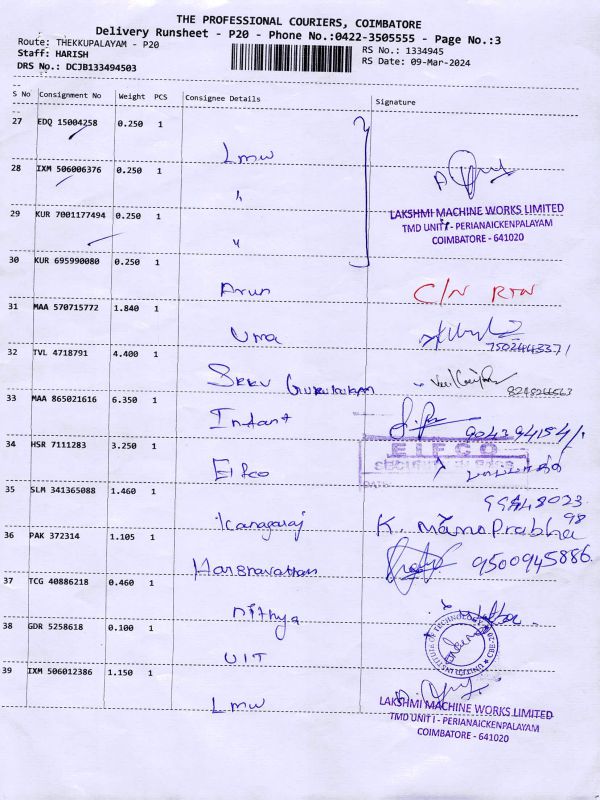 THE PROFESSIONAL COURIERS, COIMBATORE
Delivery Runsheet - P20 - Phone No.:0422-3505555 - Page No.:3
Route: THEKKUPALAYAM - P20
RS No.: 1334945
Staff: HARISH
RS Date: 09-Mar-2024
DRS No.: DCJB133494503
S No Consignment No Weight PCS Consignee Details Signature
27 EDQ 15004258 0.250 1
Lmw
28 IXM 506006376 0.250 1
LAKSHMI MACHINE WORKS LIMITED
TMD UNIT I - PERIANAICKENPALAYAM
COIMBATORE - 641020
29 KUR 7001177494 0.250 1
30 KUR 695990080 0.250 1
Arun C/N RTN
31 MAA 570715772 1.840 1
Uma
7502443371
32 TVL 4718791 4.400 1
33 MAA 865021616 6.350 1
Instant
34 HSR 7111283 3.250 1
EIFCO
Eifco
35 SLM 341365088 1.460 1
Kanagaraj K. Mano Prabha
36 PAK 372314 1.105 1
9500945886
37 TCG 40886218 0.460 1
Nithya
38 GDR 5258618 0.100 1
UIT
39 IXM 506012386 1.150 1
Lmw
LAKSHMI MACHINE WORKS LIMITED
TMD UNIT I - PERIANAICKENPALAYAM
COIMBATORE - 641020